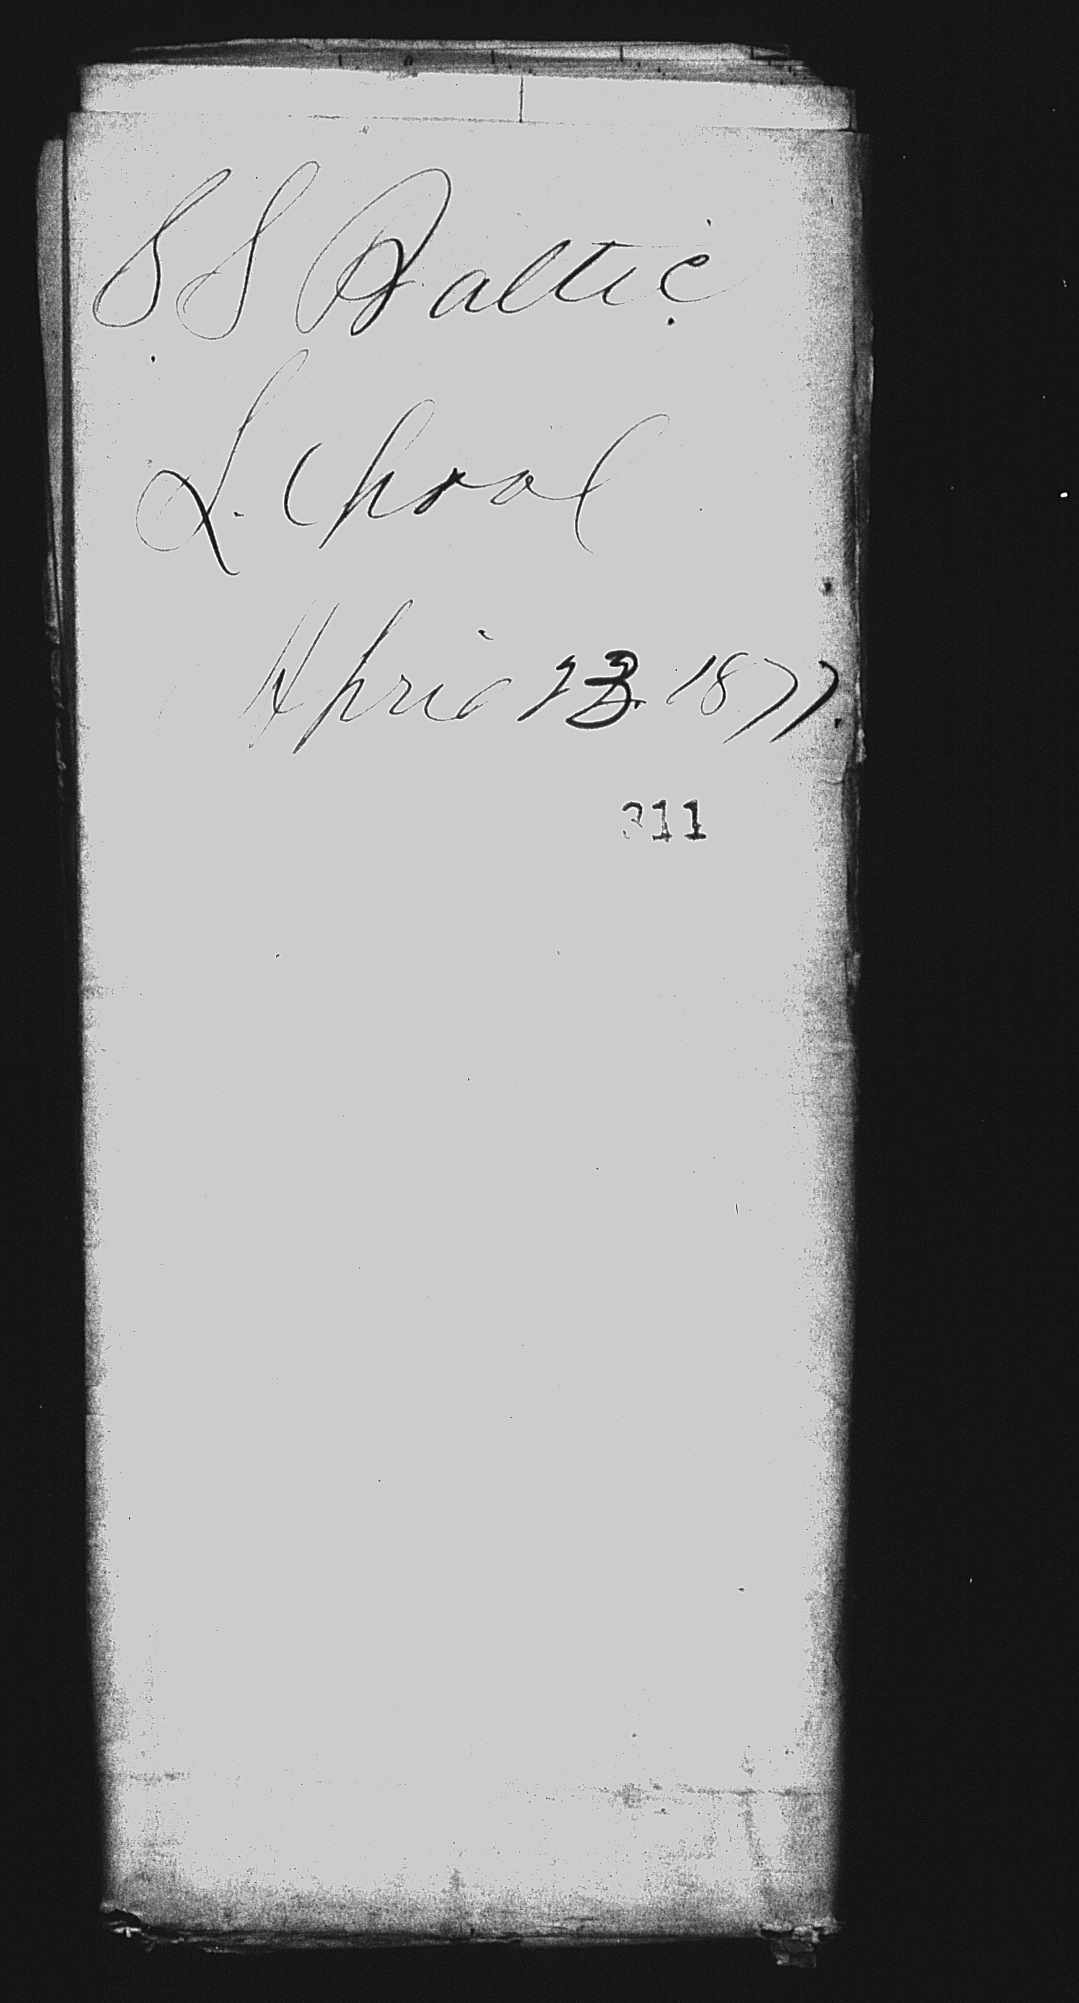 SS Baltic
L.pool
April 23. 1877.
311